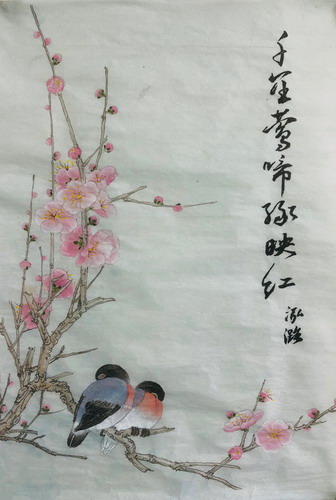 千里莺啼绿映红
泓